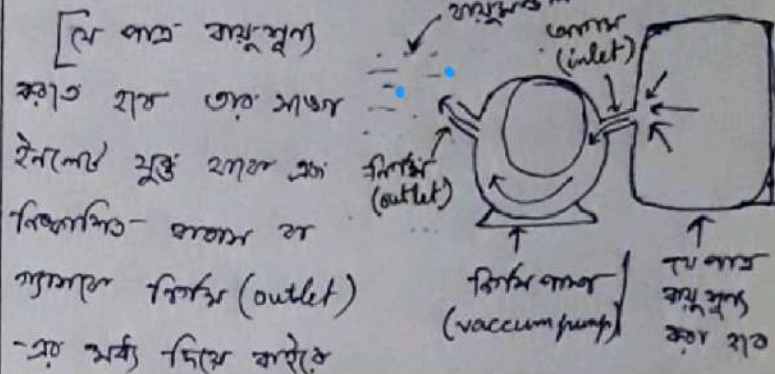 [যে পাত্র বায়ুশূন্য
করতে হবে তার সাথে
ইনলেট যুক্ত থাকে এবং
নিষ্কাশিত বাতাস বা
গ্যাসকে নির্গম (outlet)
-এর মধ্য দিয়ে বাইরে
বায়ুমণ্ডল
আগম
(inlet)
নির্গম
(outlet)
নির্গম পাম্প
(vaccum pump)
যে পাত্র
বায়ুশূন্য
করা হবে